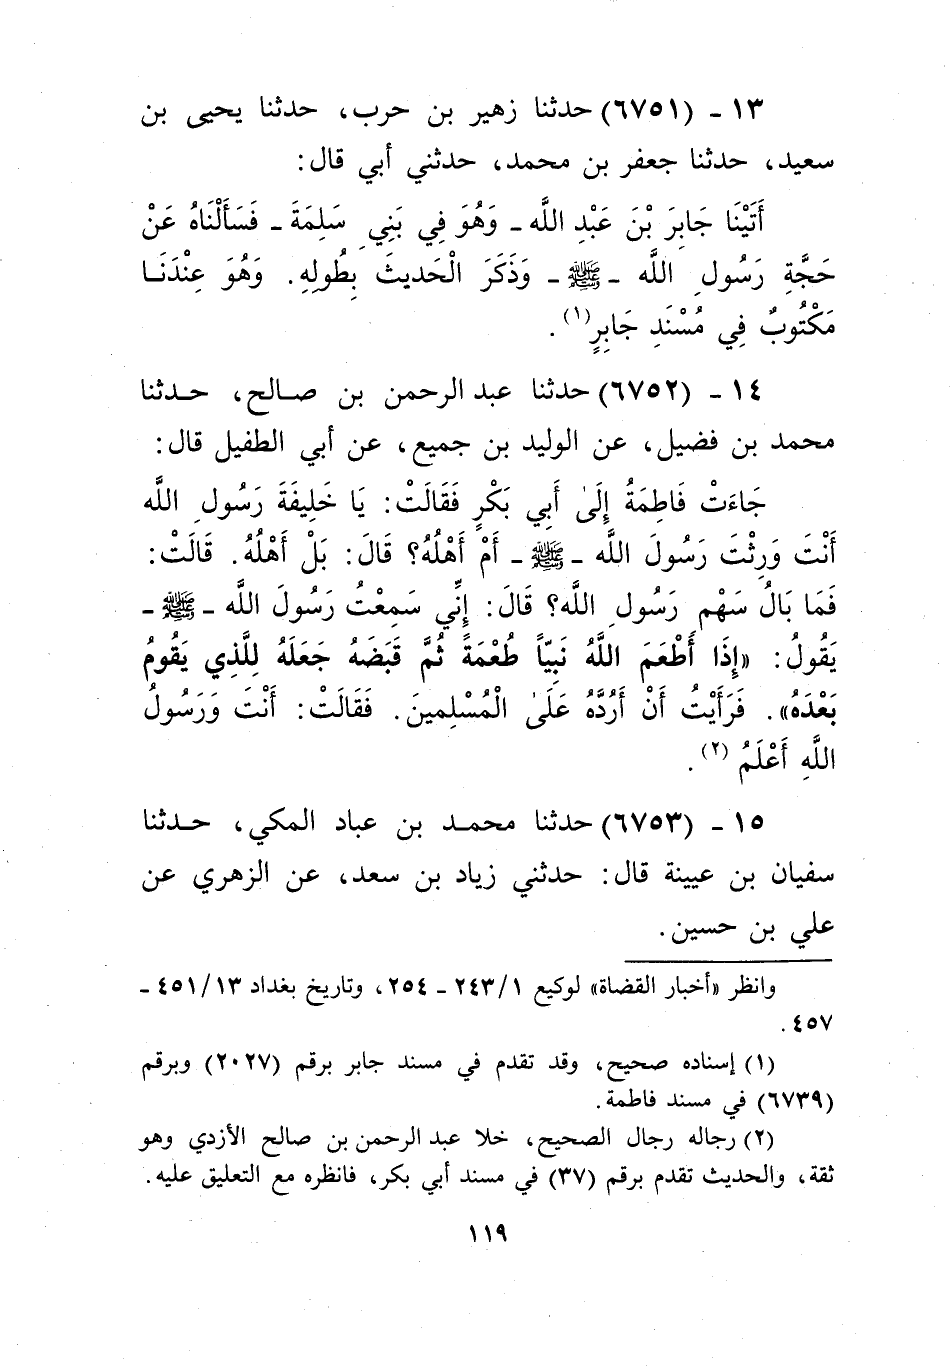 ١٣ ـ (٦٧٥١) حدثنا زهير بن حرب، حدثنا يحيى بن
سعيد، حدثنا جعفر بن محمد، حدثني أبي قال:
أَتَيْنَا جَابِرَ بْنَ عَبْدِ اللَّه ـ وَهُوَ فِي بَنِي سَلِمَةَ ـ فَسَأَلْنَاهُ عَنْ
حَجَّةِ رَسُولِ اللَّه ـ ﷺ ـ وَذَكَرَ الْحَدِيثَ بِطُولِهِ. وَهُوَ عِنْدَنَا
مَكْتُوبٌ فِي مُسْنَدِ جَابِرٍ(١).
١٤ ـ (٦٧٥٢) حدثنا عبد الرحمن بن صالح، حدثنا
محمد بن فضيل، عن الوليد بن جميع، عن أبي الطفيل قال:
جَاءَتْ فَاطِمَةُ إِلَىٰ أَبِي بَكْرٍ فَقَالَتْ: يَا خَلِيفَةَ رَسُولِ اللَّه
أَنْتَ وَرِثْتَ رَسُولَ اللَّه ـ ﷺ ـ أَمْ أَهْلُهُ؟ قَالَ: بَلْ أَهْلُهُ. قَالَتْ:
فَمَا بَالُ سَهْمِ رَسُولِ اللَّه؟ قَالَ: إِنِّي سَمِعْتُ رَسُولَ اللَّه ـ ﷺ ـ
يَقُولُ: «إِذَا أَطْعَمَ اللَّهُ نَبِيّاً طُعْمَةً ثُمَّ قَبَضَهُ جَعَلَهُ لِلَّذِي يَقُومُ
بَعْدَهُ». فَرَأَيْتُ أَنْ أَرُدَّهُ عَلَىٰ الْمُسْلِمِينَ. فَقَالَتْ: أَنْتَ وَرَسُولُ
اللَّهِ أَعْلَمُ (٢).
١٥ ـ (٦٧٥٣) حدثنا محمد بن عباد المكي، حدثنا
سفيان بن عيينة قال: حدثني زياد بن سعد، عن الزهري عن
علي بن حسين.
وانظر «أخبار القضاة» لوكيع ٢٤٣/١ ـ ٢٥٤، وتاريخ بغداد ٤٥١/١٣ ـ
٤٥٧.
(١) إسناده صحيح، وقد تقدم في مسند جابر برقم (٢٠٢٧) وبرقم
(٦٧٣٩) في مسند فاطمة.
(٢) رجاله رجال الصحيح، خلا عبد الرحمن بن صالح الأزدي وهو
ثقة، والحديث تقدم برقم (٣٧) في مسند أبي بكر، فانظره مع التعليق عليه.
١١٩